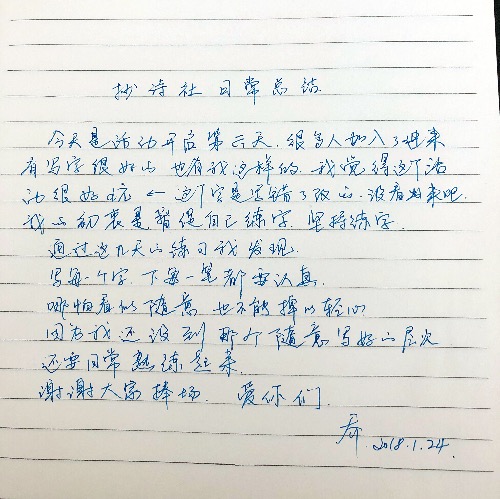 抄诗社日常总结
今天是活动开启第六天.很多人加入了进来
有写字很好的 也有我这样的.我觉得这个活
动很好玩 ← 这个字是写错了改的.没看出来吧.
我的初衷是督促自己练字 坚持练字.
通过这几天的练习我发现.
写每一个字.下每一笔都要认真.
哪怕看似随意 也不能掉以轻心
因为我还没到那个随意写好的层次
还要日常熟练起来.
谢谢大家捧场. 爱你们.
2018.1.24.